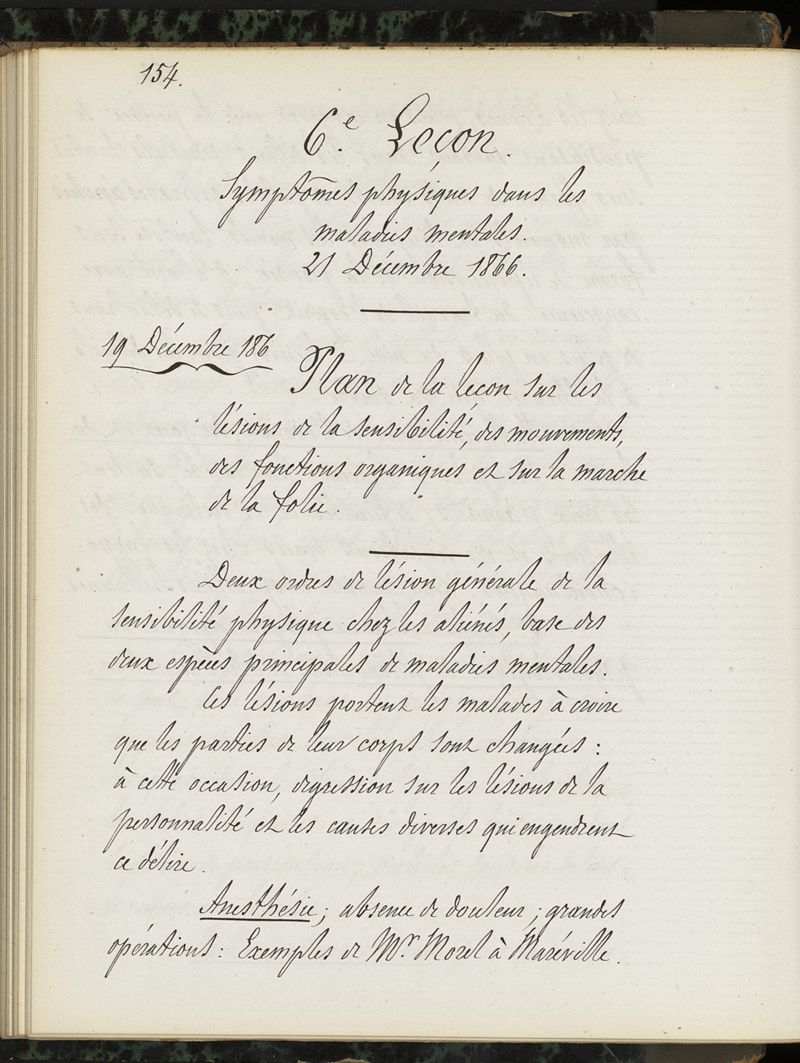 154.
6.e Leçon.
Symptômes physiques dans les
maladies mentales.
21 Décembre 1866.
19 Décembre 186
Plan de la leçon sur les
lésions de la sensibilité, des mouvements,
des fonctions organiques et sur la marche
de la folie.
Deux ordres de lésion générale de la
sensibilité physique chez les aliénés, base des
deux espèces principales de maladies mentales.
Ces lésions portent les malades à croire
que les parties de leur corps sont changées :
à cette occasion, digression sur les lésions de la
personnalité et les causes diverses qui engendrent
ce délire.
Anesthésie ; absence de douleur ; grandes
opérations : Exemples de Mr. Morel à Maréville.